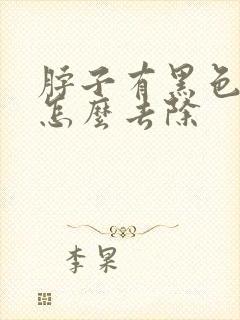 脖子有黑色
怎麼去除
李杲